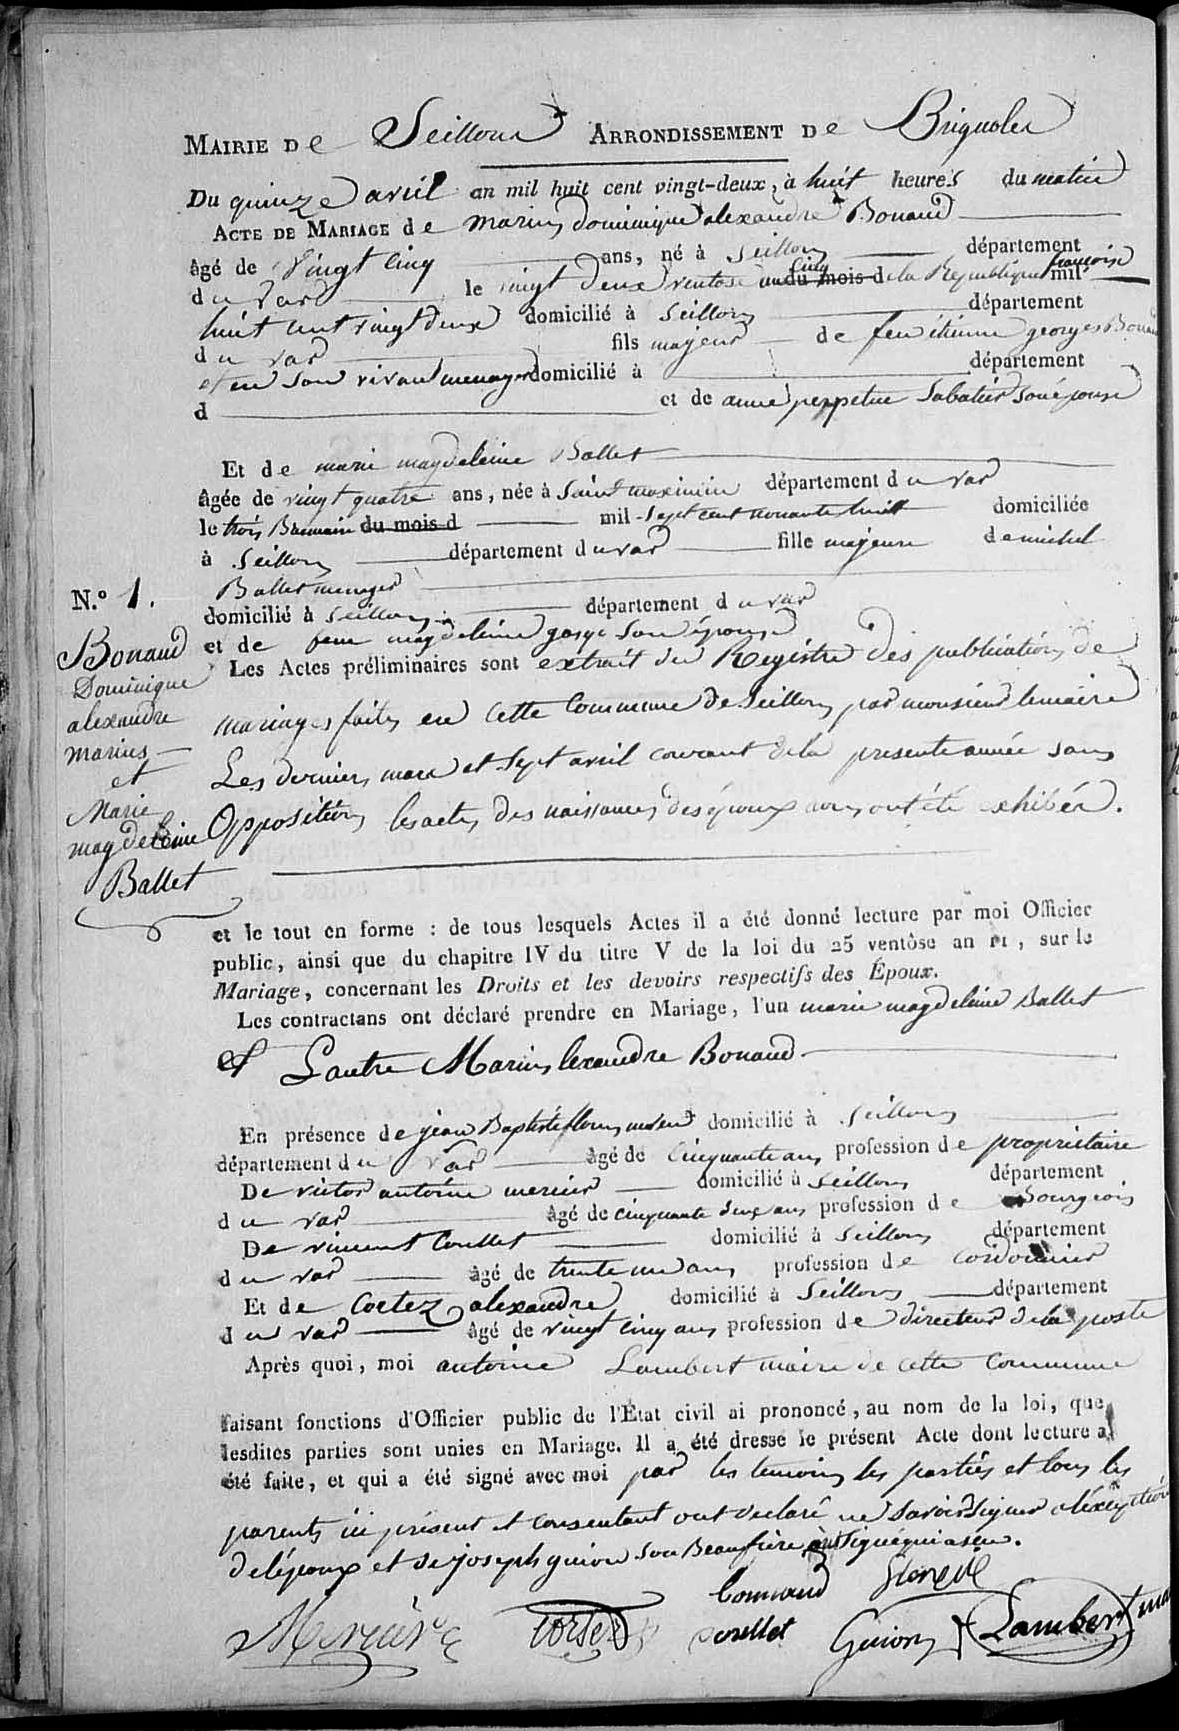 MAIRIE De Seillons ARRONDISSEMENT De Brignoles
Du quinze avril an mil huit cent vingt-deux, à huit heures du matin
ACTE DE MARIAGE de marius dominique alexandre Bonaud
âgé de vingt cinq ans, né à Seillons département
du var le vingt deux ventose an cinq du mois de la Republique françoise mil
huit cent vingt deux domicilié à Seillons département
du var fils majeur de feu étienne georges Bonaud
et en son vivant menager domicilié à département
d et de anne perpetue Sabatier son épouse
Et de marie magdeleine Ballet
âgée de vingt quatre ans, née à Saint maximin département du var
le trois Brumaire du mois d mil Sept cent nonante huit domiciliée
à Seillons département du var fille majeure de michel
Ballet menager
domicilié à Seillons département du var
et de feue magdeleine son épouse
N.° 1.
Bonaud
Dominique
alexandre
marius
et
Marie
magdeleine
Ballet
Les Actes préliminaires sont extrait du Registre des publications de
mariages faites en cette Commune de Seillons par monsieur le maire
Les dernier mars et Sept avril courant de la presente année sans
Opposition les actes des naissances des époux nous ont été exhibés.
et le tout en forme : de tous lesquels Actes il a été donné lecture par moi Officier
public, ainsi que du chapitre IV du titre V de la loi du 25 ventôse an XI, sur le
Mariage, concernant les Droits et les devoirs respectifs des Époux.
Les contractans ont déclaré prendre en Mariage, l'un marie magdeleine Ballet
Et L'autre Marius lexandre Bonaud
En présence de jean Baptiste domicilié à Seillons
département du var âgé de Cinquante ans profession de proprietaire
De victor antoine mercier domicilié à Seillons département
du var âgé de cinquante deux ans profession de Bourgeois
De vincent Coullet domicilié à Seillons département
du var âgé de trente un ans profession de cordonnier
Et de Cortez alexandre domicilié à Seillons département
du var âgé de vingt cinq ans profession de directeur de la poste
Après quoi, moi antoine Lambert maire de cette Commune
faisant fonctions d'Officier public de l'État civil ai prononcé, au nom de la loi, que
lesdites parties sont unies en Mariage. Il a été dressé le présent Acte dont lecture a
été faite, et qui a été signé avec moi par les temoins les parties et tous les
parents ici présent et consentant ont declaré ne Savoir Signer à l'exception
de l'époux et de joseph guion son Beaufrère
Bonnaud
Mercier Cortez Coullet Guion Lambert